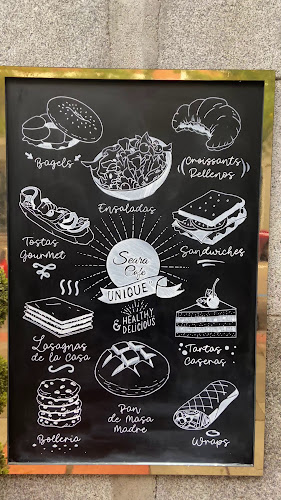 Bagels
Ensaladas
Croissants
Rellenos
Tostas
Gourmet
Sandwiches
Seara
Café
UNIQUE
HEALTHY
& DELICIOUS
Lasagnas
de la Casa
Tartas
Caseras
Pan
de Masa
Madre
Bolleria
Wraps